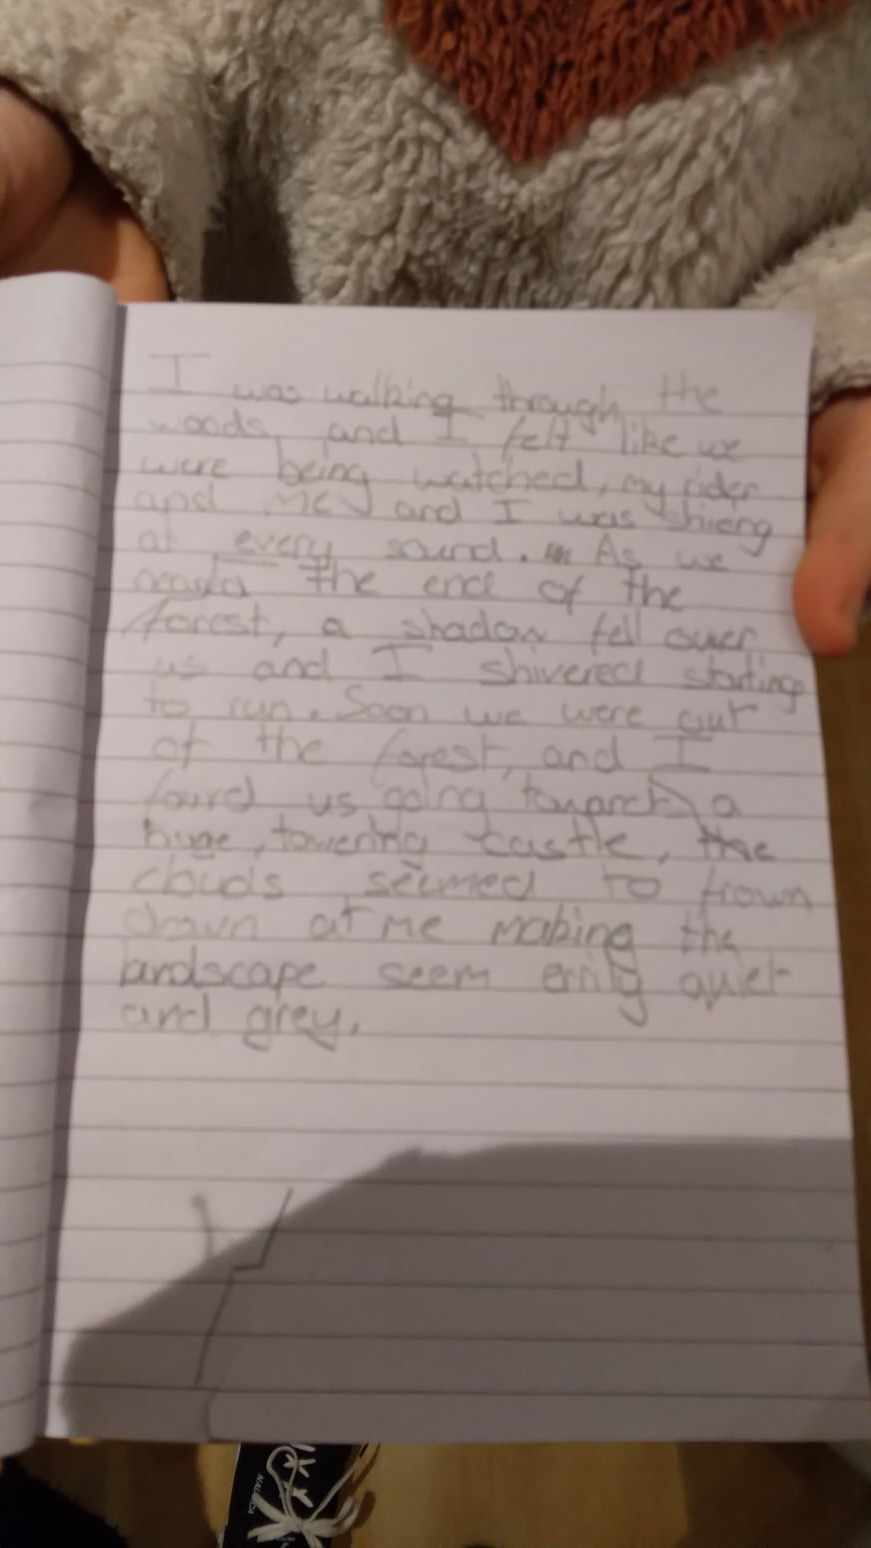 I was walking through the
woods and I felt like we
were being watched, my rider
and me, and I was shying
at every sound. As we
the end of the
forest, a shadow fell over
us and I shivered starting
to run. Soon we were out
of the forest, and I
found us going towards a
huge, towering castle, the
clouds seemed to frown
down at me making the
landscape seem erily quiet
and grey.
NAUTICA